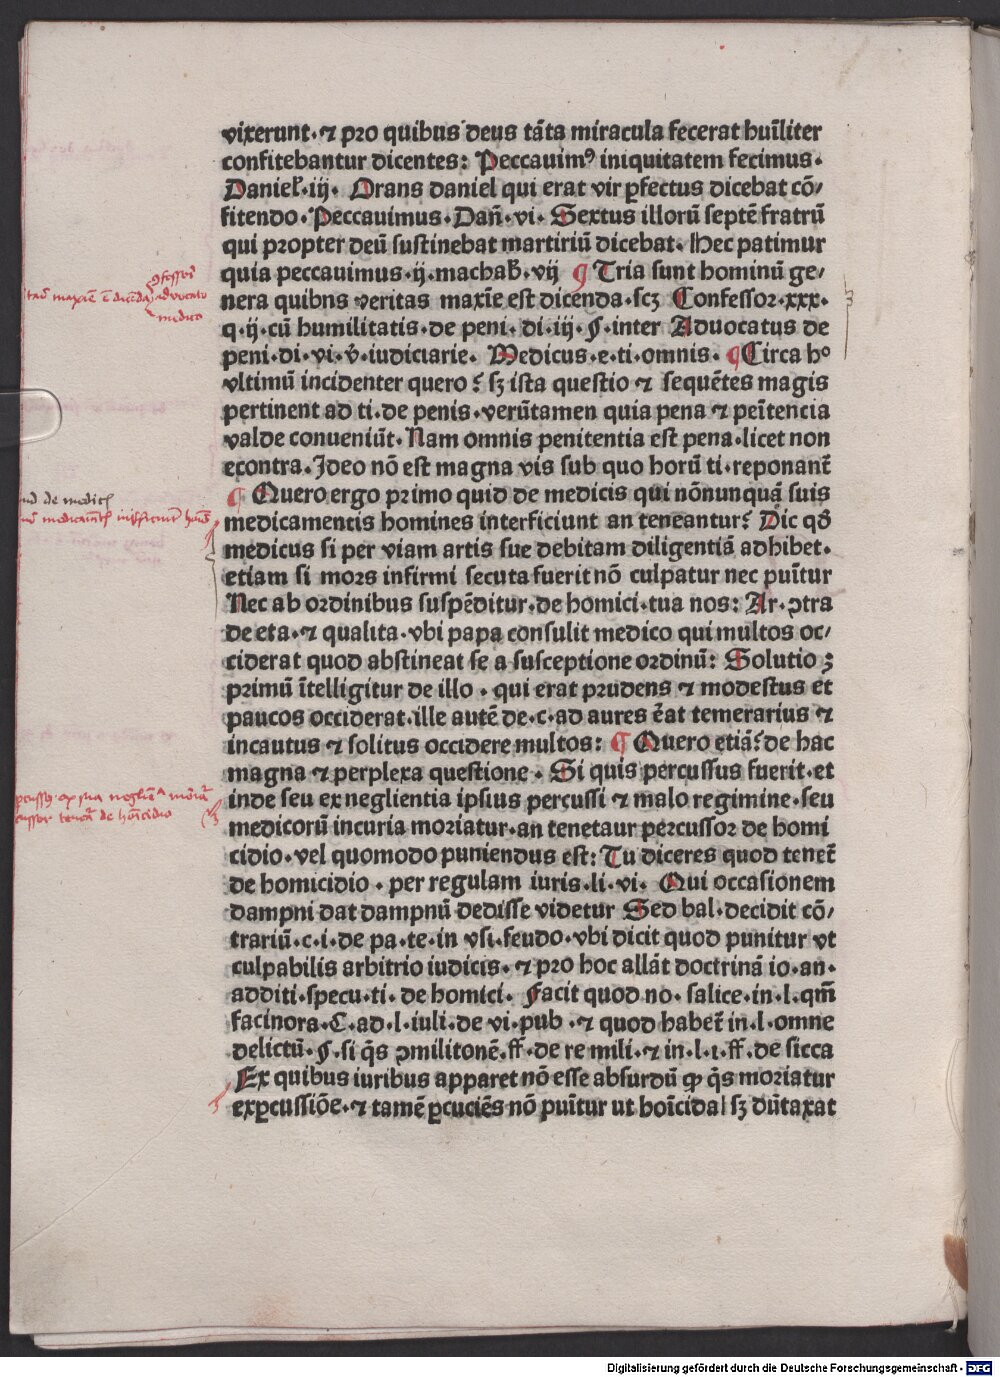 vixerunt·⁊ pro quibus deus tãta miracula fecerat huĩliter
confitebantur dicentes: Peccauimꝰ iniquitatem fecimus·
Daniel̃·iij· Orans daniel qui erat vir ꝑfectus dicebat cõ/
fitendo·Peccauimus·Dañ·vi· Sextus illorũ septẽ fratrũ
qui propter deũ sustinebat martiriũ dicebat· Hec patimur
quia peccauimus·ij·machab̃·vij ¶ Tria sunt hominũ ge/
nera quibns veritas maxĩe est dicenda·scꝫ Confessor·xxx·
q·ij·cũ humilitatis·de peni·di·iij·§·inter Aduocatus de
peni·di·vi·v̾·iudiciarie· Medicus·e·ti·omnis· ¶Circa hᵒ
vltimũ incidenter quero? sꝫ ista questio ⁊ sequẽtes magis
pertinent ad ti·de penis·verũtamen quia pena ⁊ peñtencia
valde conueniũt·Nam omnis penitentia est pena·licet non
econtra·Ideo nõ est magna vis sub quo horũ ti·reponant̃
¶ Quero ergo primo quid de medicis qui nõnunquã suis
medicamentis homines interficiunt an teneantur? Dic qð
medicus si per viam artis sue debitam diligentiã adhibet·
etiam si mors infirmi secuta fuerit nõ culpatur nec puĩtur
Nec ab ordinibus suspẽditur·de homici·tua nos: Ar·ↄtra
de eta·⁊ qualita·vbi papa consulit medico qui multos oc/
ciderat quod abstineat se a susceptione ordinũ: Solutio ;
primũ ĩtelligitur de illo · qui erat prudens ⁊ modestus et
paucos occiderat·ille autẽ de·c·ad aures e̾at temerarius ⁊
incautus ⁊ solitus occidere multos: ¶ Quero etiã?de hac
magna ⁊ perplexa questione · Si quis percussus fuerit·et
inde seu ex neglientia ipsius percussi ⁊ malo regimine·seu
medicorũ incuria moriatur·an tenetaur percussor de homi
cidio·vel quomodo puniendus est: Tu diceres quod tenet̃
de homicidio · per regulam iuris·li·vi· Qui occasionem
dampni dat dampnũ dedisse videtur Sed bal·decidit cõ/
trariũ·c·i·de pa·te·in vsi·feudo·vbi dicit quod punitur vt
culpabilis arbitrio iudicis·⁊ pro hoc allãt doctrinã io·an·
additi·specu·ti·de homici· Facit quod no·salice·in·l·qm̃
facinora·C·ad·l·iuli·de vi·pub·⁊ quod habet̃ in·l·omne
delictũ·§·si q̃s ↄmilitonẽ·ff·de re mili·⁊ in·l·1·ff·de sicca
Ex quibus iuribus apparet nõ esse absurdũ ꝙ q̃s moriatur
exꝑcussiõe·⁊ tamẽ ꝑcuciẽs nõ puĩtur ut hoĩcida| sꝫ dũtaxat
aduocato
medico
de medic
Digitalisierung gefördert durch die Deutsche Forschungsgemeinschaft - DFG